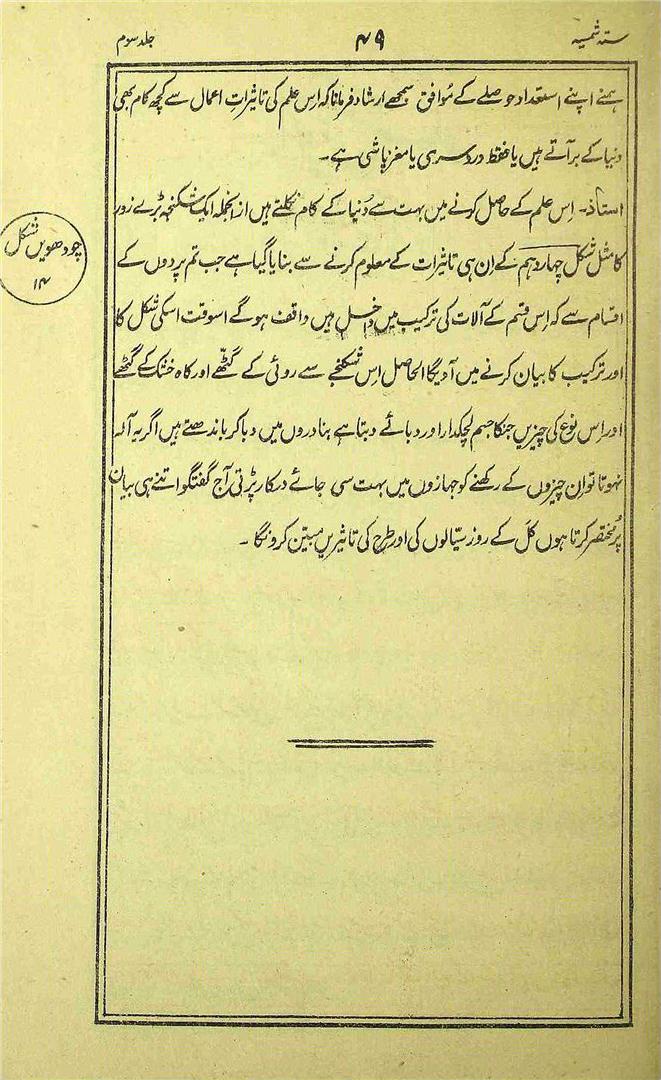 ستہ شمسیہ
۴۹
جلد سوم
ہمنے اپنے استعداد و حوصلے کے موافق سمجھے ارشاد فرمانا کہ اس علم کی تاثیراتِ اعمال سے کچھ کام بھی
دنیا کے برآتے ہیں یا فقط دردسری یا مغز پاشی ہے۔
استاذ۔ اِس علم کے حاصل کرنے میں بہت سے دُنیا کے کام نکلتے ہیں ازانجملہ ایک شکنجہ بڑے زور
کا مثل شکل چہاردہم کے اِن ہی تاثیرات کے معلوم کرنے سے بنایا گیا ہے جب تم پردوں کے
اقسام سے کہ اِس قسم کے آلات کی ترکیب میں داخل ہیں واقف ہوگے اسوقت اسکی شکل کا
اور ترکیب کا بیان کرنے میں آویگا الحاصل اِس شکنجے سے روئی کے گٹھے اور کاہ خشک کے گٹھے
اور اِس نوع کی چیزیں جنکا جسم لچکدار اور دبائے دبتا ہے بنادروں میں دبا کر باندھتے ہیں اگر یہ آلہ
نہوتا تو اِن چیزوں کے رکھنے کو جہازوں میں بہت سی جائے درکار پڑتی آج گفتگو اتنے ہی بیان
پر مختصر کرتا ہوں کل کے روز سیّالوں کی اور طرح کی تاثیریں مبیّن کرونگا۔
چودھویں شکل
۱۴